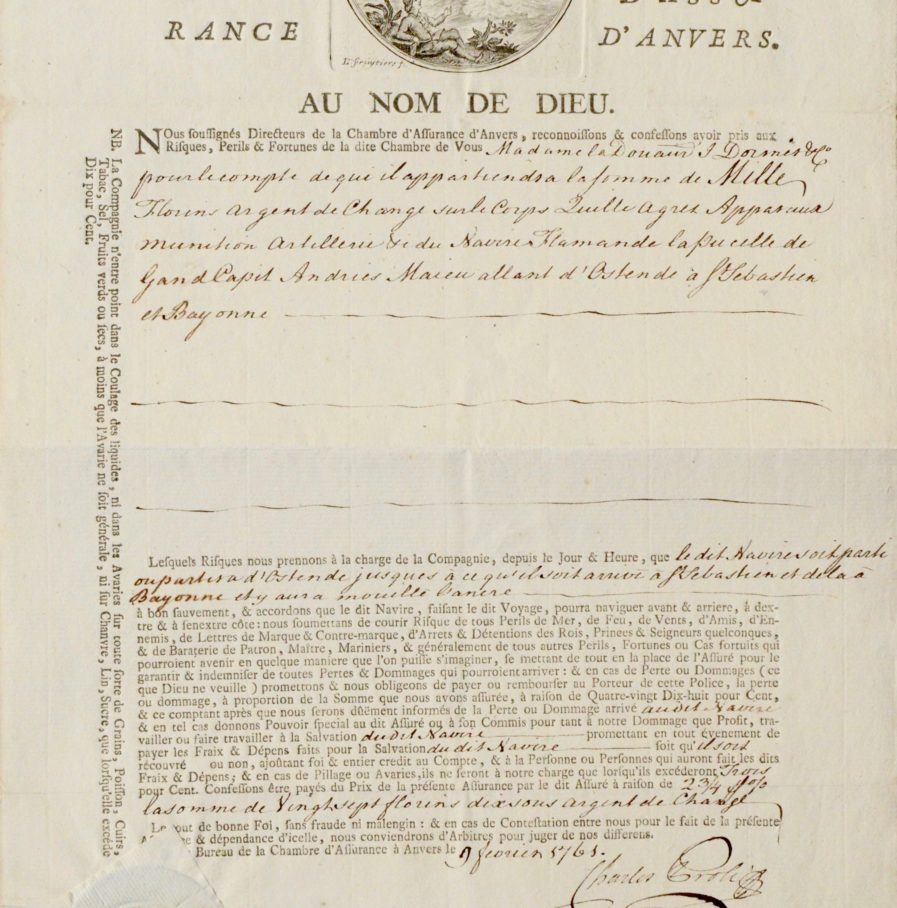 RANCE D'ANVERS.
AU NOM DE DIEU.
NOus souſſignés Directeurs de la Chambre d'Aſſurance d'Anvers, reconnoiſſons & confeſſons avoir pris aux
Riſques, Perils & Fortunes de la dite Chambre de Vous Madame la Douair J Dormer & Co
pour le compte de qui il appartiendra la ſomme de Mille
Florins argent de Change sur le Corps Quille Agret Apparaux
munition Artillerie &c du Navire Flamande la pucelle de
Gand Capit Andries Maieu allant d'Ostende à St Sebastien
et Bayonne
Leſquels Riſques nous prennons à la charge de la Compagnie, depuis le Jour & Heure, que le dit Navire soit parti
ou partira d'Ostende jusques a ce qu'il soit arrivé à St Sebastien et de la à
Bayonne et y aura mouillé l'ancre
à bon sauvement, & accordons que le dit Navire, faiſant le dit Voyage, pourra naviguer avant & arriere, à dex-
tre & à ſenextre côte: nous ſoumettans de courir Riſque de tous Perils de Mer, de Feu, de Vents, d'Amis, d'En-
nemis, de Lettres de Marque & Contre-marque, d'Arrets & Détentions des Rois, Princes & Seigneurs quelconques,
& de Baraterie de Patron, Maître, Mariniers, & généralement de tous autres Perils, Fortunes ou Cas fortuits qui
pourroient avenir en quelque maniere que l'on puiſſe s'imaginer, ſe mettant de tout en la place de l'Aſſuré pour le
garantir & indemniſer de toutes Pertes & Dommages qui pourroient arriver: & en cas de Perte ou Dommages (ce
que Dieu ne veuille) promettons & nous obligeons de payer ou rembourſer au Porteur de cette Police, la perte
ou dommage, à proportion de la Somme que nous avons aſſurée, à raiſon de Quatre-vingt Dix-huit pour Cent,
& ce comptant après que nous ſerons dûëment informés de la Perte ou Dommage arrivé au dit Navire
& en tel cas donnons Pouvoir ſpecial au dit Aſſuré ou à ſon Commis pour tant à notre Dommage que Profit, tra-
vailler ou faire travailler à la Salvation du dit Navire promettant en tout évenement de
payer les Fraix & Dépens faits pour la Salvation du dit Navire ſoit qu'il soit
récouvré ou non, ajoûtant foi & entier credit au Compte, & à la Perſonne ou Perſonnes qui auront fait les dits
Fraix & Dépens; & en cas de Pillage ou Avaries, ils ne ſeront à notre charge que lorſqu'ils excéderont Trois
pour Cent. Confeſſons être payés du Prix de la préſente Aſſurance par le dit Aſſuré à raiſon de 2 3/4 p%
la somme de Vingt sept florins dix sous argent de Change
Le tout de bonne Foi, ſans fraude ni malengin: & en cas de Conteſtation entre nous pour le fait de la préſente
& dépendance d'icelle, nous conviendrons d'Arbitres pour juger de nos differens.
Bureau de la Chambre d'Aſſurance à Anvers le 9 fevrier 1761.
Charles Proli
NB. La Compagnie n'entre point dans le Coulage des liquides, ni dans les Avaries ſur toute ſorte de Grains, Poiſſon, Cuirs,
Tabac, Sel, Fruits verds ou ſecs, à moins que l'Avarie ne ſoit générale, ni ſur Chanvre, Lin, Sucre, que lorſqu'elle excéde
Dix pour Cent.